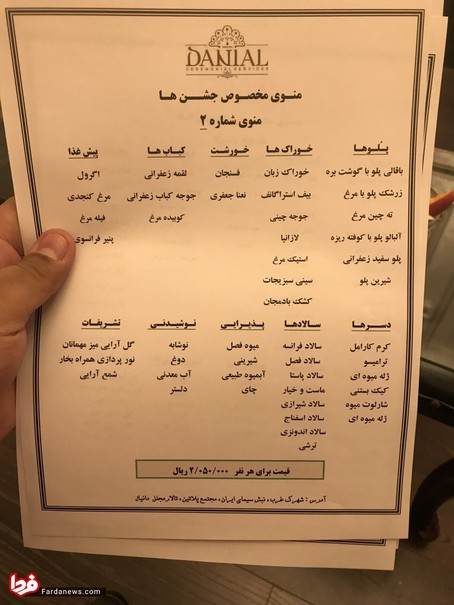 DANIAL
CEREMONIAL SERVICES
منوی مخصوص جشن ها
منوی شماره ۲
پلوها
باقالی پلو با گوشت بره
زرشک پلو با مرغ
ته چین مرغ
آلبالو پلو با کوفته ریزه
پلو سفید زعفرانی
شیرین پلو
خوراک ها
خوراک زبان
بیف استراگانف
جوجه چینی
لازانیا
استیک مرغ
سینی سبزیجات
کشک بادمجان
خورشت
فسنجان
نعنا جعفری
کباب ها
لقمه زعفرانی
جوجه کباب زعفرانی
کوبیده مرغ
پیش غذا
اگرول
مرغ کنجدی
فیله مرغ
پنیر فرانسوی
دسرها
کرم کارامل
ترامیسو
ژله میوه ای
کیک بستنی
شارلوت میوه
ژله میوه ای
سالادها
سالاد فرانسه
سالاد فصل
سالاد پاستا
ماست و خیار
سالاد شیرازی
سالاد اسفناج
سالاد اندونزی
ترشی
پذیرایی
میوه فصل
شیرینی
آبمیوه طبیعی
چای
نوشیدنی
نوشابه
دوغ
آب معدنی
دلستر
تشریفات
گل آرایی میز مهمانان
نور پردازی همراه بخار
شمع آرایی
قیمت برای هر نفر ۲/۰۵۰/۰۰۰ ریال
آدرس : شهرک غرب، نبش سیمای ایران، مجتمع پلاتین، تالار مجلل دانیال
فردا
Fardanews.com